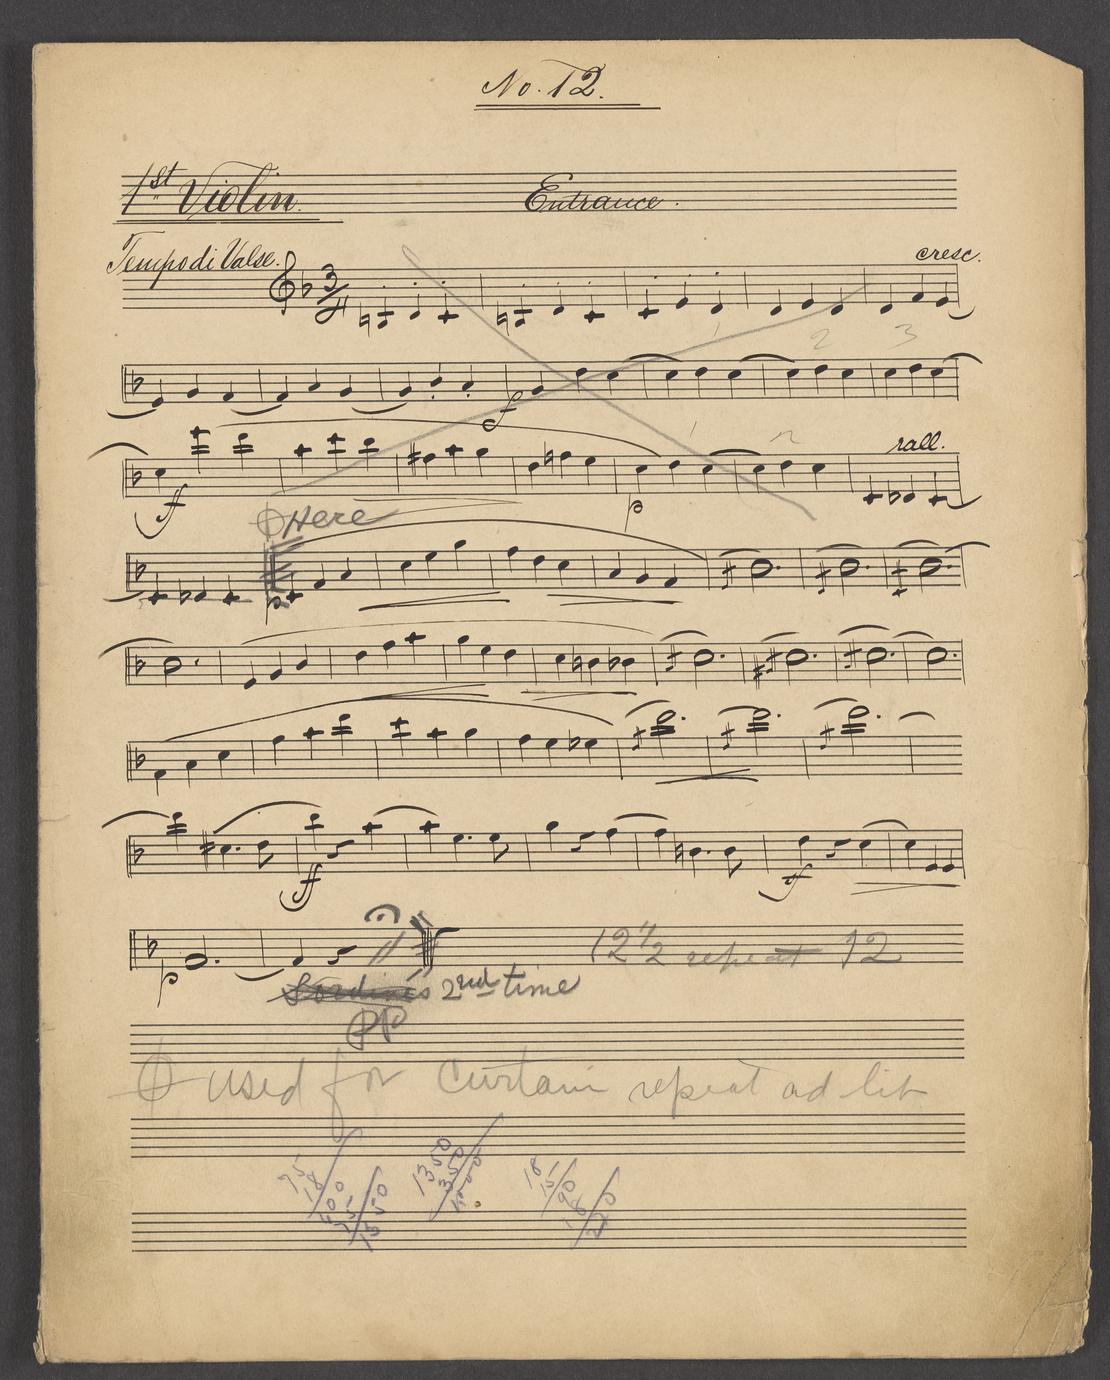 No. 12.
1st Violin.
Entrance.
Tempo di Valse.
cresc.
3/4
1 2 3
f
1 2
rall.
f
p
Here
p
ff
f
p
12 1/2 repeat 12
Sordinés 2nd time
PP
used for Curtain repeat ad lib
1350
350
18